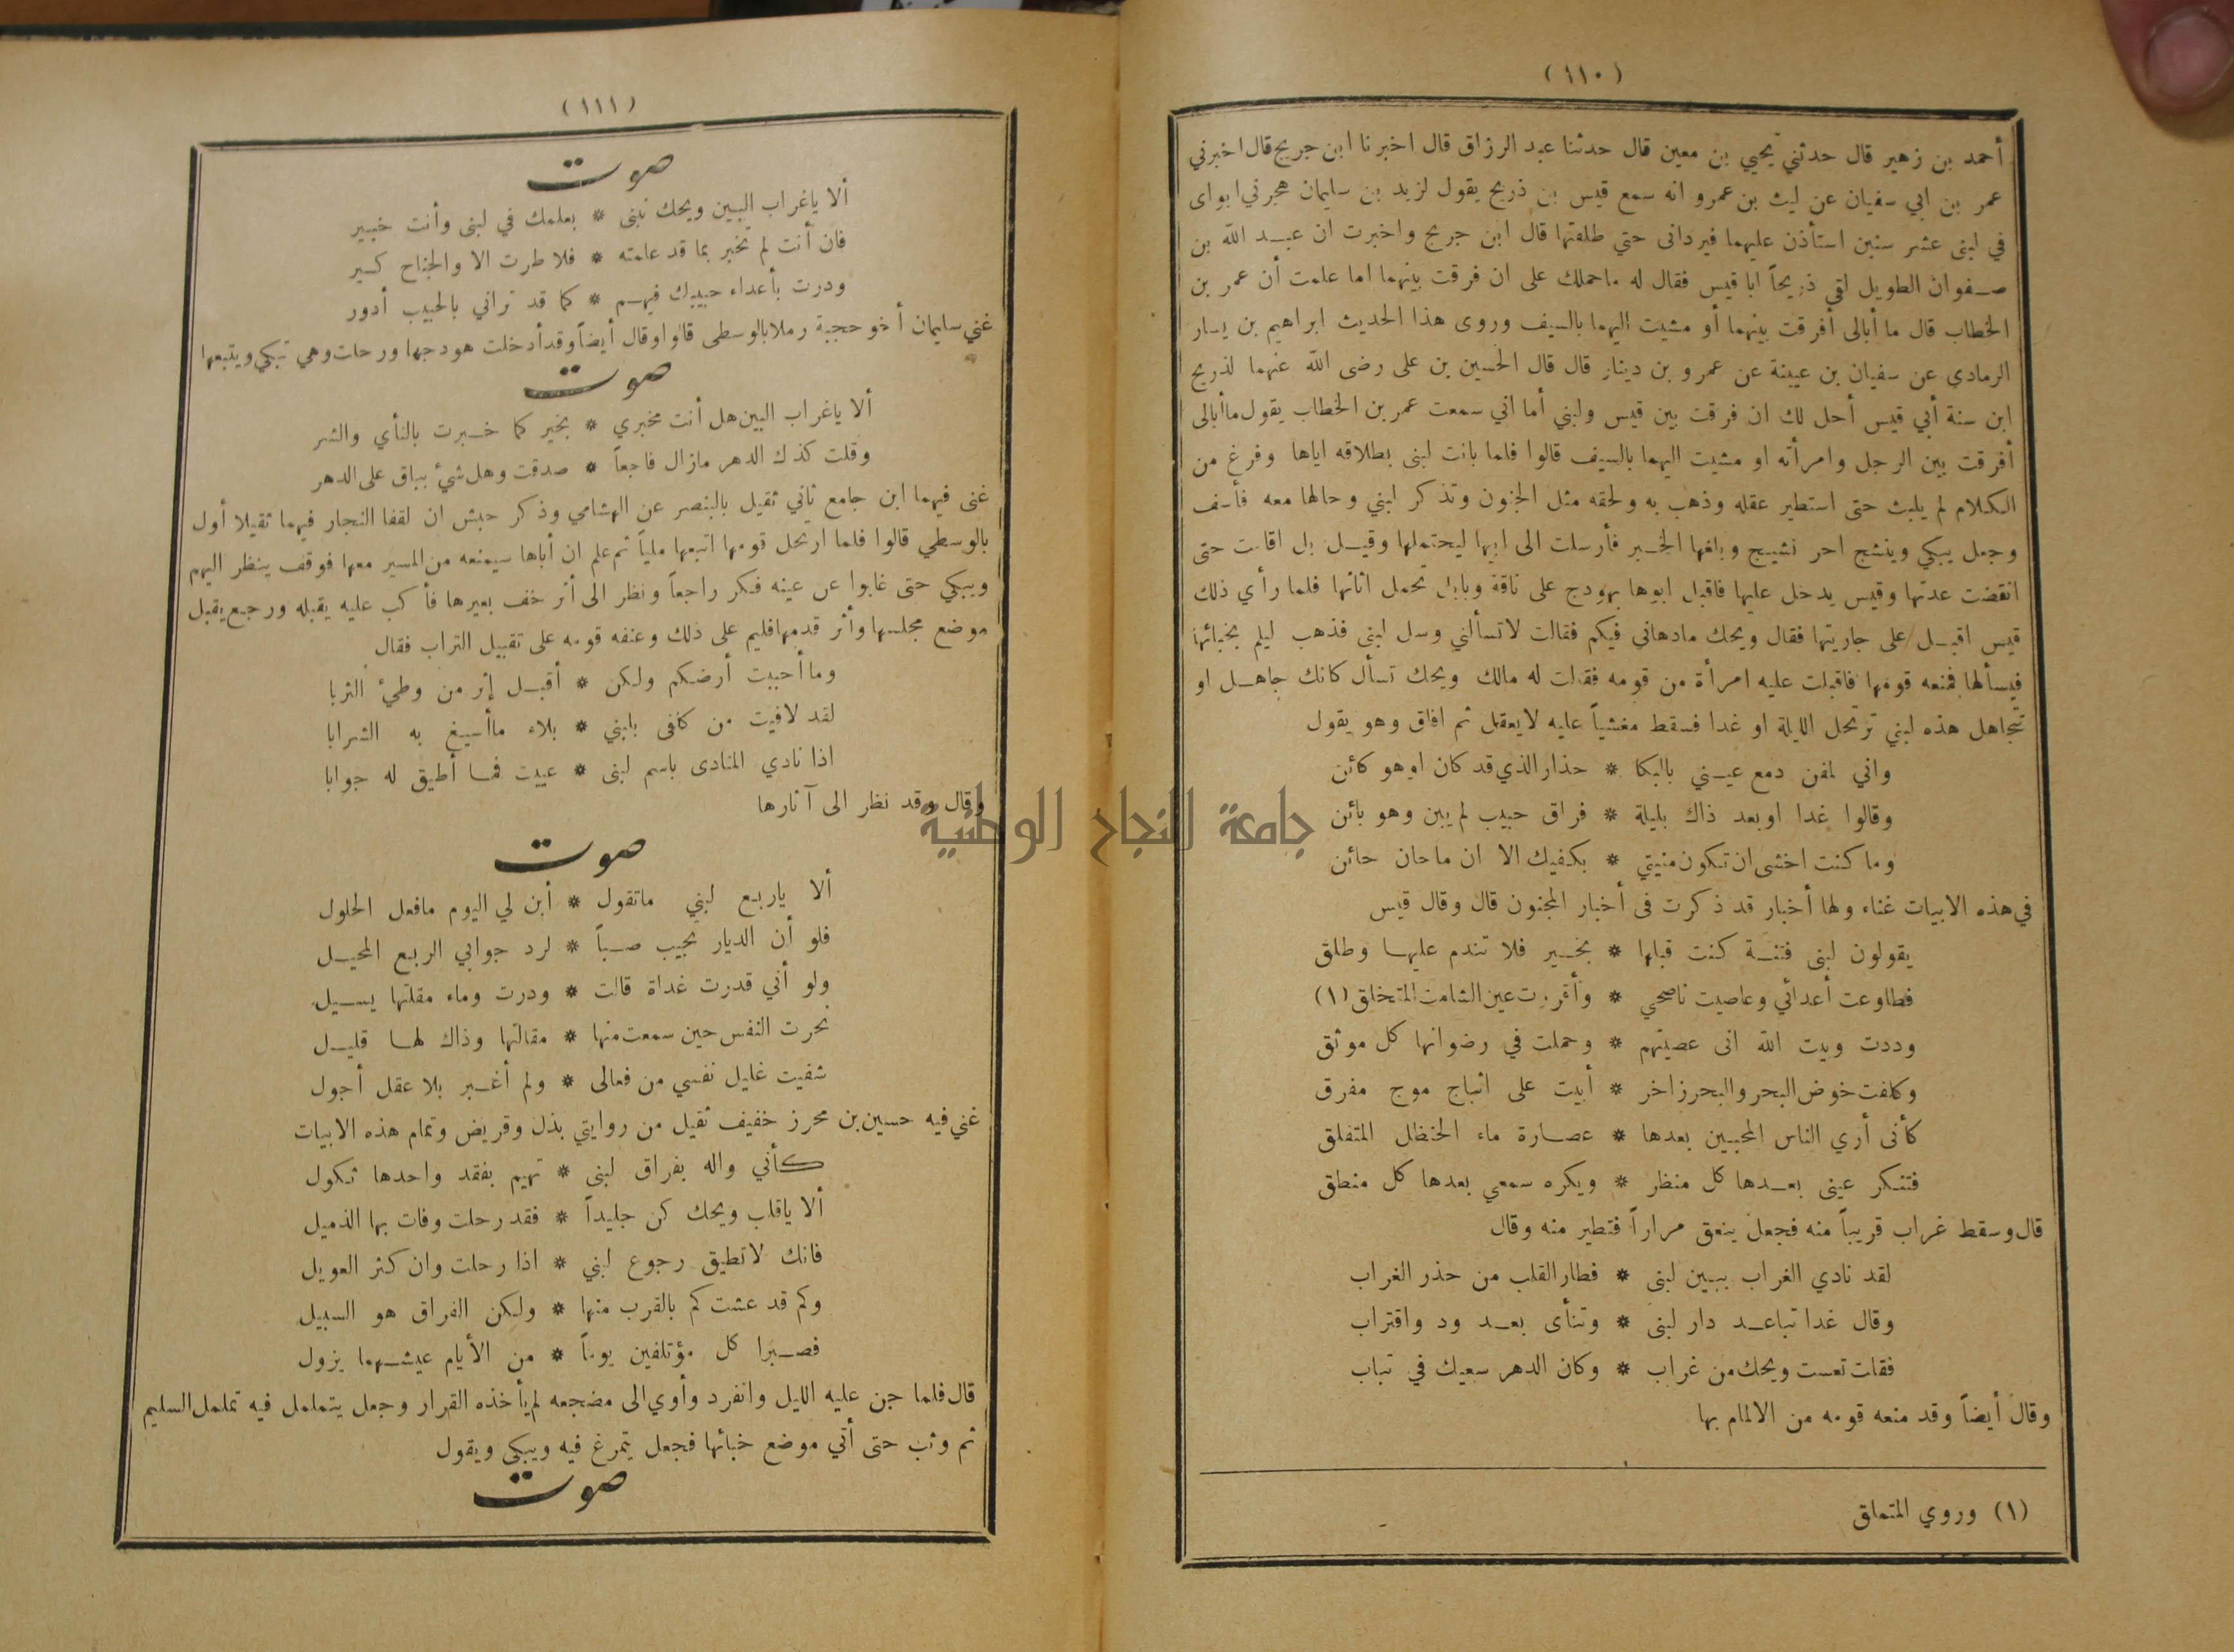 (١١٠)
أحمد بن زهير قال حدثني يحيي بن معين قال حدثنا عبد الرزاق قال اخبرنا ابن جريج قال اخبرني
عمر بن ابي سفيان عن ليث بن عمرو انه سمع قيس بن ذريح يقول لزيد بن سليمان هجرني ابواى
في لبنى عشر سنين استأذن عليهما فيردانى حتي طلقتها قال ابن جريج واخبرت ان عبد الله بن
صفوان الطويل لقي ذريحاً ابا قيس فقال له ماحملك على ان فرقت بينهما اما علمت أن عمر بن
الخطاب قال ما أبالى أفرقت بينهما أو مشيت اليهما بالسيف وروى هذا الحديث ابراهيم بن يسار
الرمادي عن سفيان بن عيينة عن عمرو بن دينار قال قال الحسين بن على رضى الله عنهما لذريح
ابن سنة أبي قيس أحل لك ان فرقت بين قيس ولبني أما اني سمعت عمر بن الخطاب يقول ماأبالى
أفرقت بين الرجل وامرأته او مشيت اليهما بالسيف قالوا فلما بانت لبنى بطلاقه اياها وفرغ من
الكلام لم يلبث حتى استطير عقله وذهب به ولحقه مثل الجنون وتذكر لبني وحالها معه فأسف
وجعل يبكي وينشج احر نشيج وبلغها الخبر فأرسلت الى ابيها ليحتملها وقيل بل اقامت حتى
انقضت عدتها وقيس يدخل عليها فاقبل ابوها بهودج على ناقة وبابل تحمل اثاثها فلما رأي ذلك
قيس اقبل على جاريتها فقال ويحك مادهانى فيكم فقالت لاتسألني وسل لبنى فذهب ليلم بخبائها
فيسألها فمنعه قومها فاقبلت عليه امرأة من قومه فقالت له مالك ويحك تسأل كانك جاهل او
تتجاهل هذه لبني ترتحل الليلة او غدا فسقط مغشياً عليه لايعقل ثم افاق وهو يقول
واني لمفن دمع عيني بالبكا * حذار الذي قد كان او هو كائن
وقالوا غدا او بعد ذاك بليلة * فراق حبيب لم يبن وهو بائن
وما كنت اخشى ان تكون منيتي * بكفيك الا ان ماحان حائن
في هذه الابيات غناء ولها أخبار قد ذكرت فى أخبار المجنون قال وقال قيس
يقولون لبنى فتنة كنت قبلها * بخير فلا تندم عليها وطلق
فطاوعت أعدائي وعاصيت ناصحي * وأقررت عين الشامت المتخلق (١)
وددت وبيت الله انى عصيتهم * وحملت في رضوانها كل موثق
وكلفت خوض البحر والبحر زاخر * أبيت على اثباج موج مفرق
كأنى أري الناس المحبين بعدها * عصارة ماء الحنظل المتفلق
فتنكر عينى بعدها كل منظر * ويكره سمعي بعدها كل منطق
قال وسقط غراب قريباً منه فجعل ينعق مراراً فتطير منه وقال
لقد نادي الغراب ببين لبنى * فطار القلب من حذر الغراب
وقال غدا تباعد دار لبنى * وتنأى بعد ود واقتراب
فقلت تعست ويحك من غراب * وكان الدهر سعيك في تباب
وقال أيضاً وقد منعه قومه من الالمام بها
(١) وروي المتملق
(١١١)
صوت
ألا ياغراب البين ويحك نبنى * بعلمك في لبنى وأنت خبير
فان أنت لم تخبر بما قد علمته * فلا طرت الا والجناح كسير
ودرت بأعداء حبيبك فيهم * كما قد تراني بالحبيب أدور
غني سليمان أخو حجبة رملا بالوسطى قالوا وقال أيضاً وقد أدخلت هودجها ورحلت وهي تبكي ويتبعها
صوت
ألا ياغراب البين هل أنت مخبري * بخير كما خبرت بالنأي والشر
وقلت كذك الدهر مازال فاجعاً * صدقت وهل شيء بباق على الدهر
غنى فيهما ابن جامع ثاني ثقيل بالبنصر عن الهشامي وذكر حبش ان لقفا النجار فيهما ثقيلا أول
بالوسطي قالوا فلما ارتحل قومها اتبعها ملياً ثم علم ان أباها سيمنعه من المسير معها فوقف ينظر اليهم
ويبكي حتى غابوا عن عينه فكر راجعاً ونظر الى أثر خف بعيرها فأكب عليه يقبله ورجع يقبل
موضع مجلسها وأثر قدمها فليم على ذلك وعنفه قومه على تقبيل التراب فقال
وما أحببت أرضكم ولكن * أقبل إثر من وطئ الترابا
لقد لاقيت من كلفى بلبني * بلاء ماأسيغ به الشرابا
اذا نادي المنادى باسم لبنى * عييت فما أطيق له جوابا
وقال وقد نظر الى آثارها
صوت
ألا ياربع لبني ماتقول * أبن لي اليوم مافعل الحلول
فلو أن الديار تجيب صباً * لرد جوابي الربع المحيل
ولو أني قدرت غداة قالت * ودرت وماء مقلتها يسيل
نحرت النفس حين سمعت منها * مقالتها وذاك لها قليل
شفيت غليل نفسي من فعالى * ولم أغبر بلا عقل أجول
غني فيه حسين بن محرز خفيف ثقيل من روايتي بذل وقريض وتمام هذه الابيات
كأني واله بفراق لبنى * تهيم بفقد واحدها ثكول
ألا ياقلب ويحك كن جليداً * فقد رحلت وفات بها الذميل
فانك لاتطيق رجوع لبني * اذا رحلت وان كثر العويل
وكم قد عشت كم بالقرب منها * ولكن الفراق هو السبيل
فصبرا كل مؤتلفين يوماً * من الأيام عيشهما يزول
قال فلما جن عليه الليل وانفرد وأوي الى مضجعه لم يأخذه القرار وجعل يتململ فيه تململ السليم
ثم وثب حتى أتي موضع خبائها فجعل يتمرغ فيه ويبكى ويقول
صوت
جامعة النجاح الوطنية